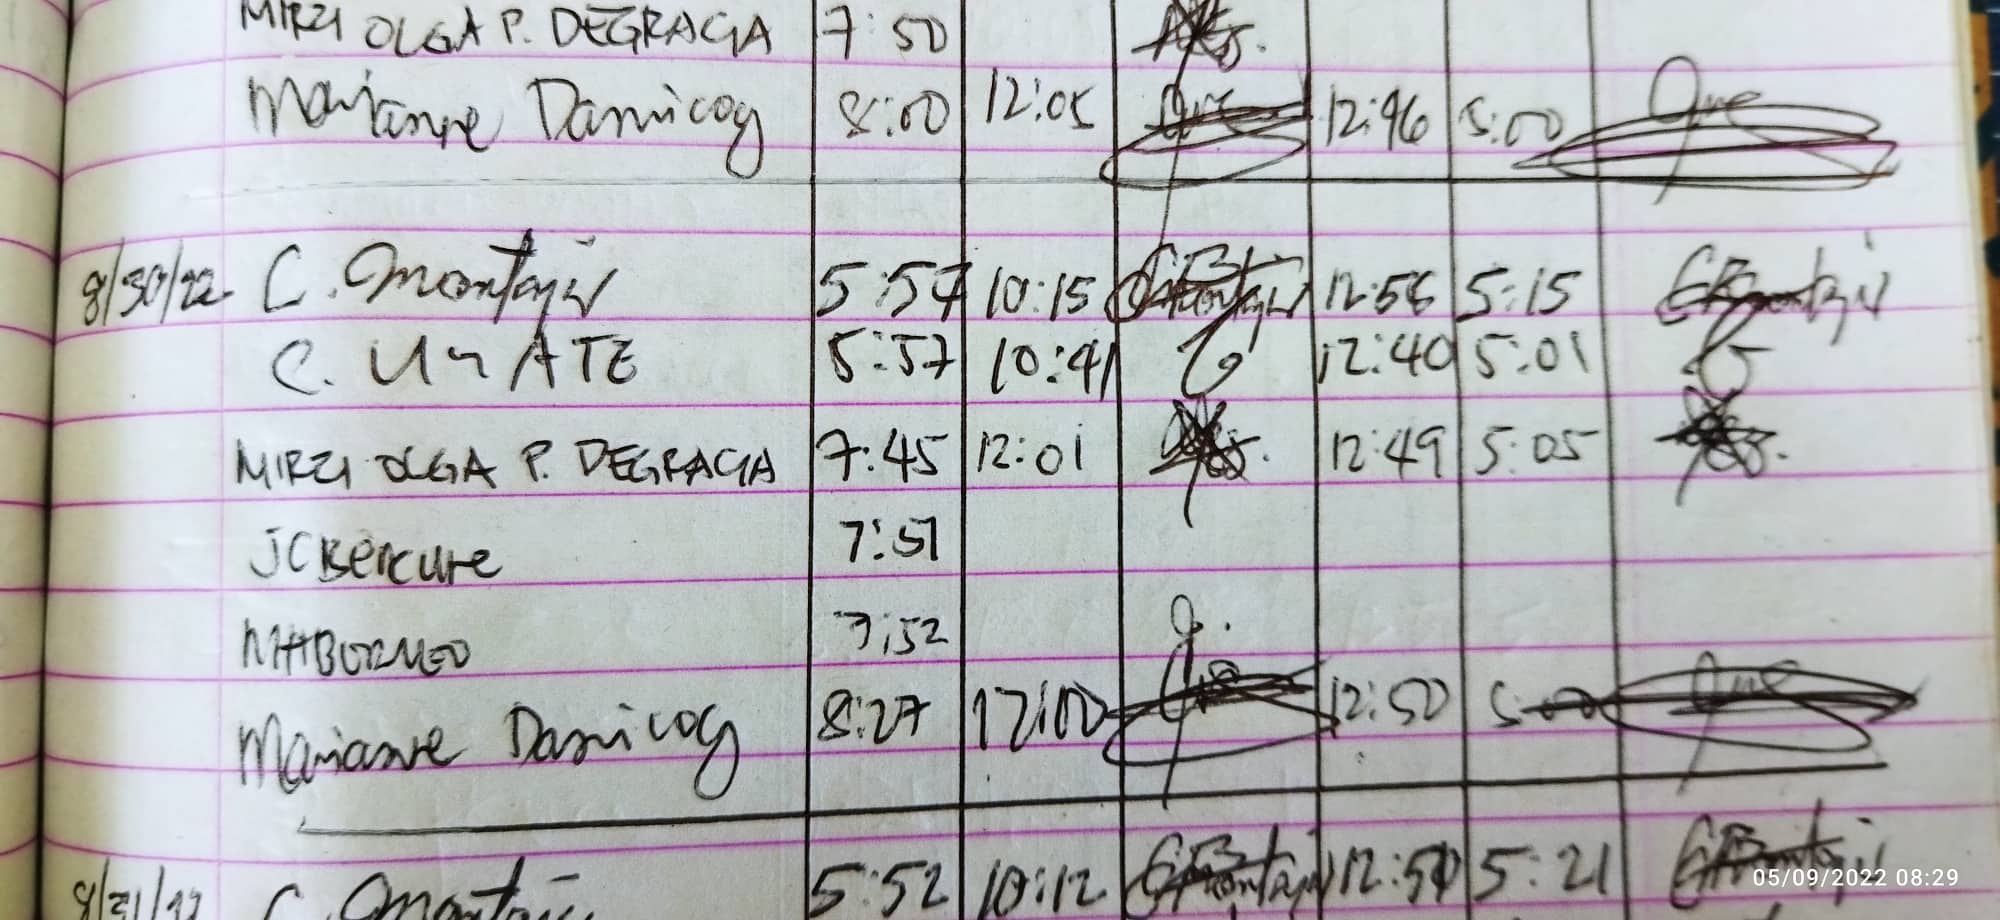 MIRZI OLGA P. DEGRACIA 7:50
Marianne Damicog 8:00 12:05 12:46 5:00
8/30/22 C. Montajir 5:57 10:15 12:56 5:15
C. 5:57 10:41 12:40 5:01
MIRZI OLGA P. DEGRACIA 7:45 12:01 12:49 5:05
JCBercure 7:51
7:52
Marianne Damicog 8:27 12:00 12:50 5:00
8/31/22 C. Montajir 5:52 10:12 12:51 5:21
05/09/2022 08:29